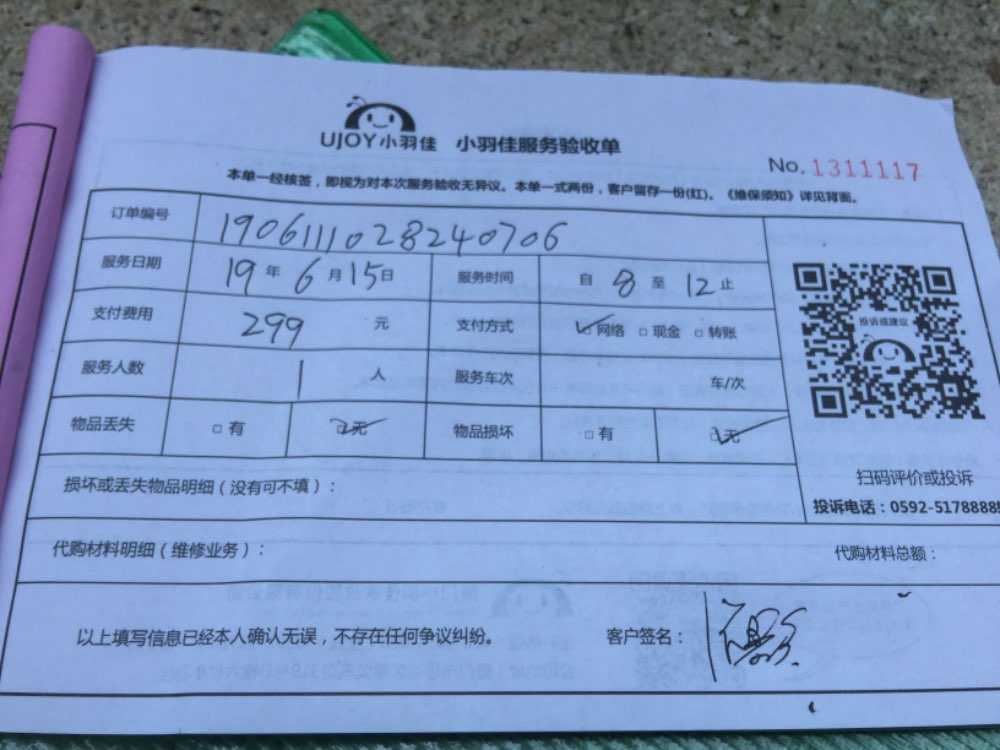 UJOY小羽佳 小羽佳服务验收单
No. 1311117
本单一经核签，即视为对本次服务验收无异议。本单一式两份，客户留存一份(红)。《维保须知》详见背面。
订单编号 1906111028240706
服务日期 19年6月15日 服务时间 自8至12止
支付费用 299元 支付方式 ☑网络 □现金 □转账
服务人数 1人 服务车次 车/次
物品丢失 □有 ☑无 物品损坏 □有 ☑无
投诉或建议
扫码评价或投诉
投诉电话：0592-5178888
损坏或丢失物品明细（没有可不填）：
代购材料明细（维修业务）： 代购材料总额：
以上填写信息已经本人确认无误，不存在任何争议纠纷。 客户签名：